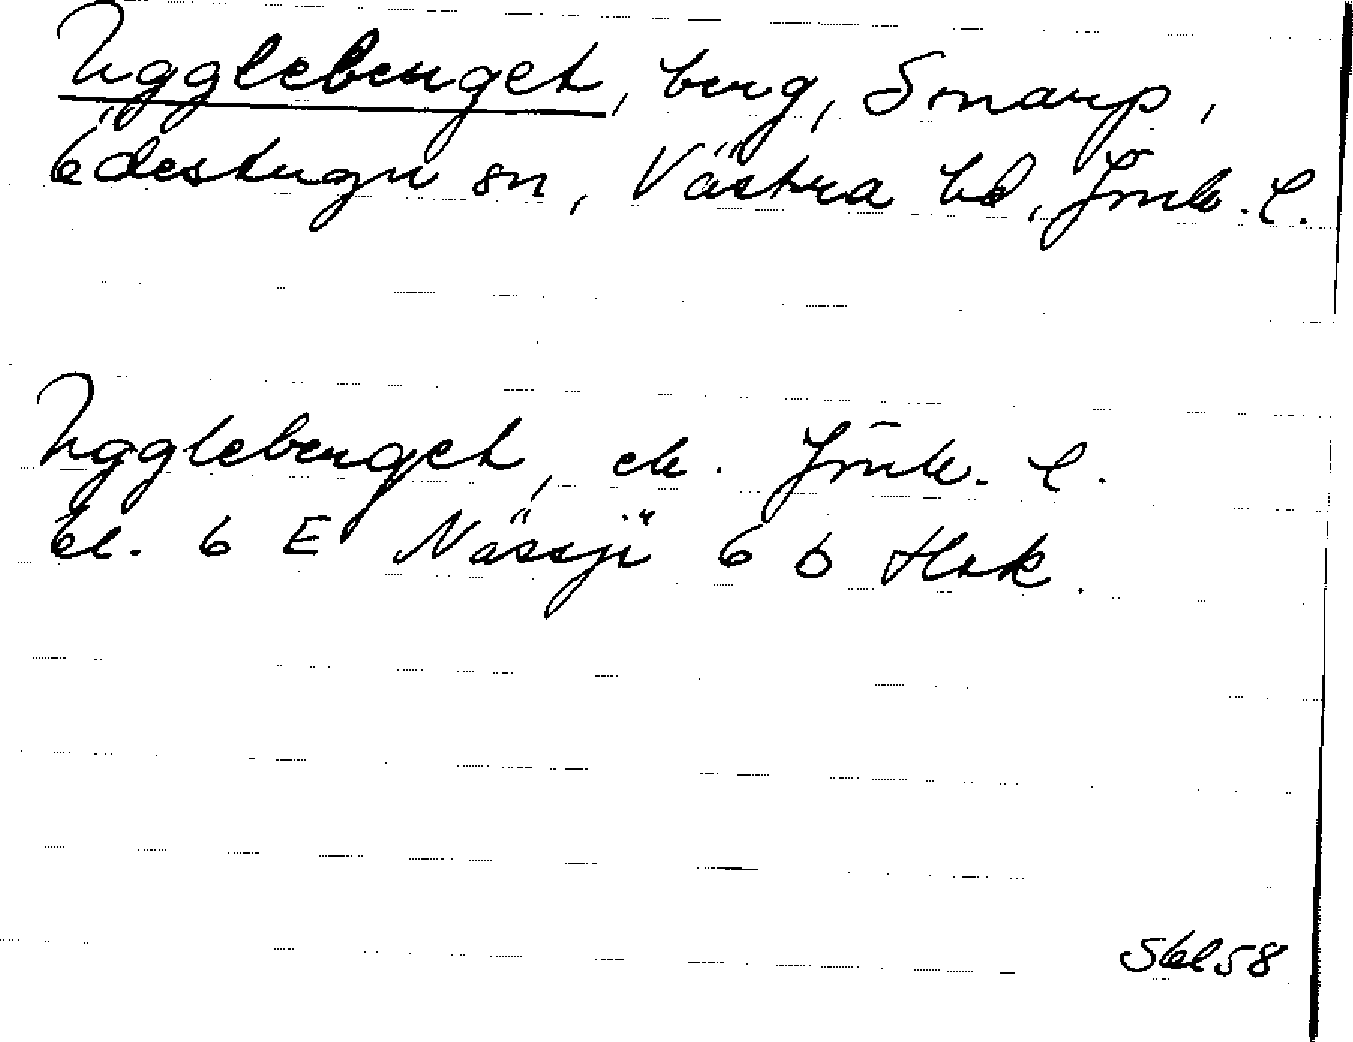 Uggleberget, berg, Smarp,
Bdestugu sn, Västra hd, Jönk. l.
Uggleberget, ek. Jönk. l.
bl. 6 E Nässjö 6 b Hok.
Sbl58